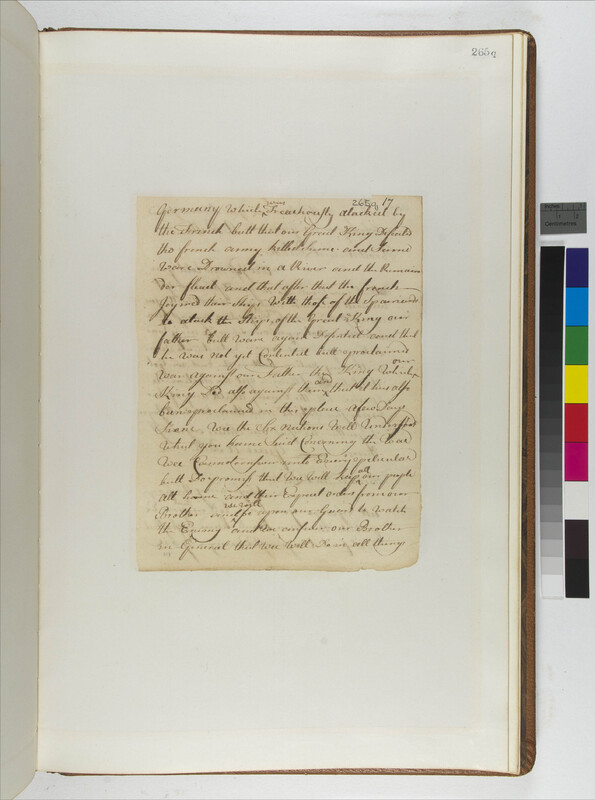 265q
265q 17
Germany which Treacherously atacked by
the French butt that our Great King Defeated
the french army, killed some and Some
Ware Drowned in a River and the Remain
der fleed and that after that the french
Joyned their Ships With thos of the Spaniards
to atack the Ships of the Great King our
father butt Ware again Defeated and that
he was not yet Contented butt aproclaimed
War against our father the King Which our
King Did also against them and that it has also
ben aproclaimed in this place a few Days
Since. Wee the Six Nations Well Understand
What you have Said Concerning the War
Wee Cann answer unto Every perticular
butt Do promise that Wee Will keep all our people
att home and their Expect orders from our
Brother and we will be upon our Guard to Watch
the Enemy and Wee asshure our Brother
in General that Wee Will Doe all things